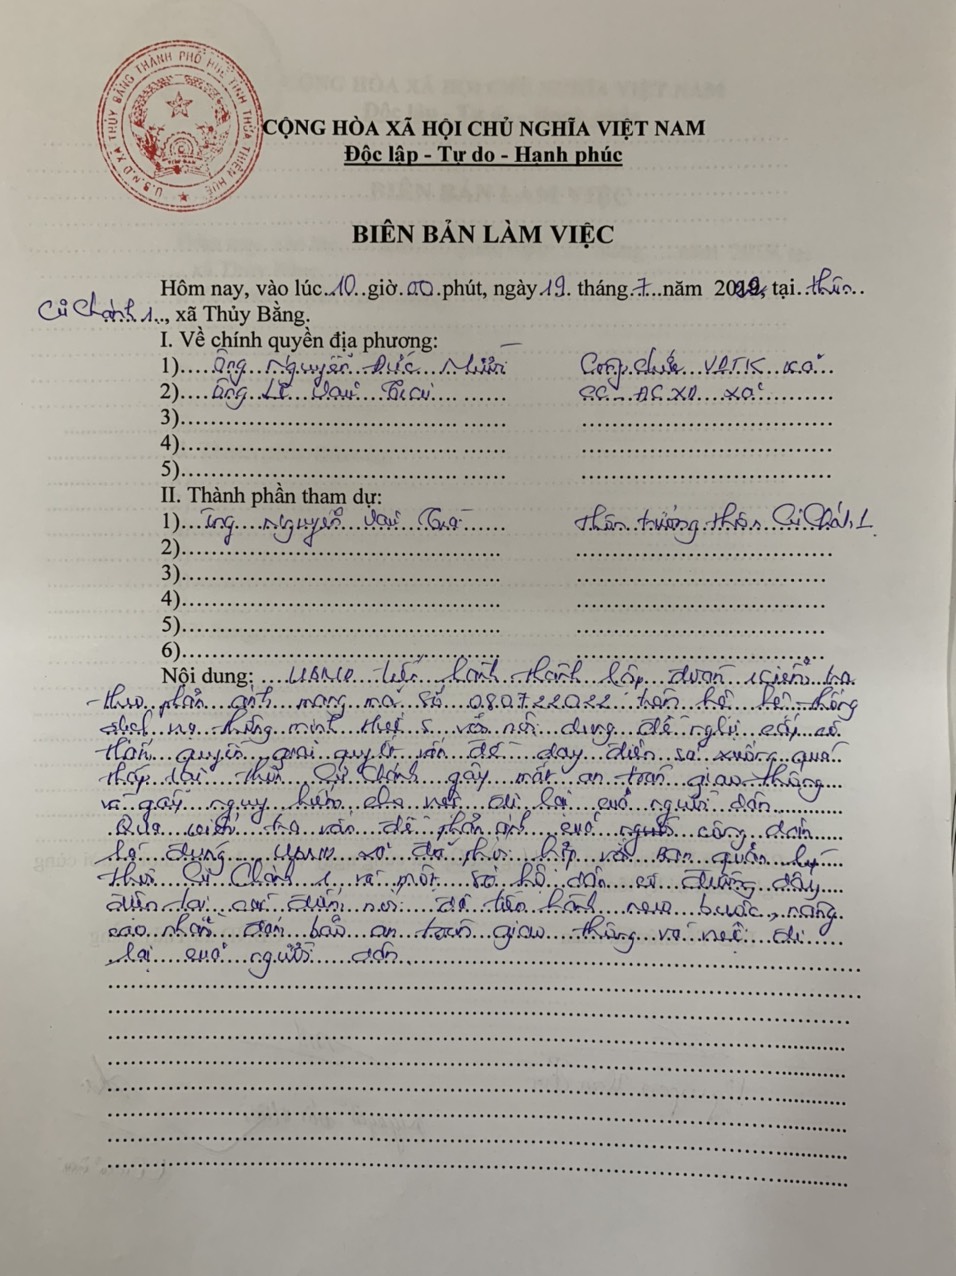 U.B.N.D XÃ THỦY BẰNG THÀNH PHỐ HUẾ TỈNH THỪA THIÊN HUẾ
CỘNG HÒA XÃ HỘI CHỦ NGHĨA VIỆT NAM
Độc lập - Tự do - Hạnh phúc
BIÊN BẢN LÀM VIỆC
Hôm nay, vào lúc 10 giờ 00 phút, ngày 19 tháng 7 năm 2022, tại thôn
Cư Chánh 1, xã Thủy Bằng.
I. Về chính quyền địa phương:
1) Ông Nguyễn Đức Công chức xã
2) Ông Lê Văn xã
3)
4)
5)
II. Thành phần tham dự:
1) Ông Nguyễn Văn thôn trưởng thôn Cư Chánh 1
2)
3)
4)
5)
6)
Nội dung: UBND tiến hành thành lập đoàn kiểm tra
theo phản ánh mang mã số 08072022 trên hệ thống
dịch vụ thông minh với nội dung đề nghị cấp có
thẩm quyền giải quyết vấn đề dây điện sà xuống quá
thấp tại thôn Cư Chánh gây mất an toàn giao thông
và gây nguy hiểm cho việc đi lại của người dân
Qua kiểm tra vấn đề phản ánh của người công dân
UBND xã đã phối hợp với Ban quản lý
thôn Cư Chánh 1 và một số hộ dân có đường dây
điện tại địa điểm nơi để tiến hành neo buộc, nâng
cao nhằm đảm bảo an toàn giao thông và việc đi
lại của người dân